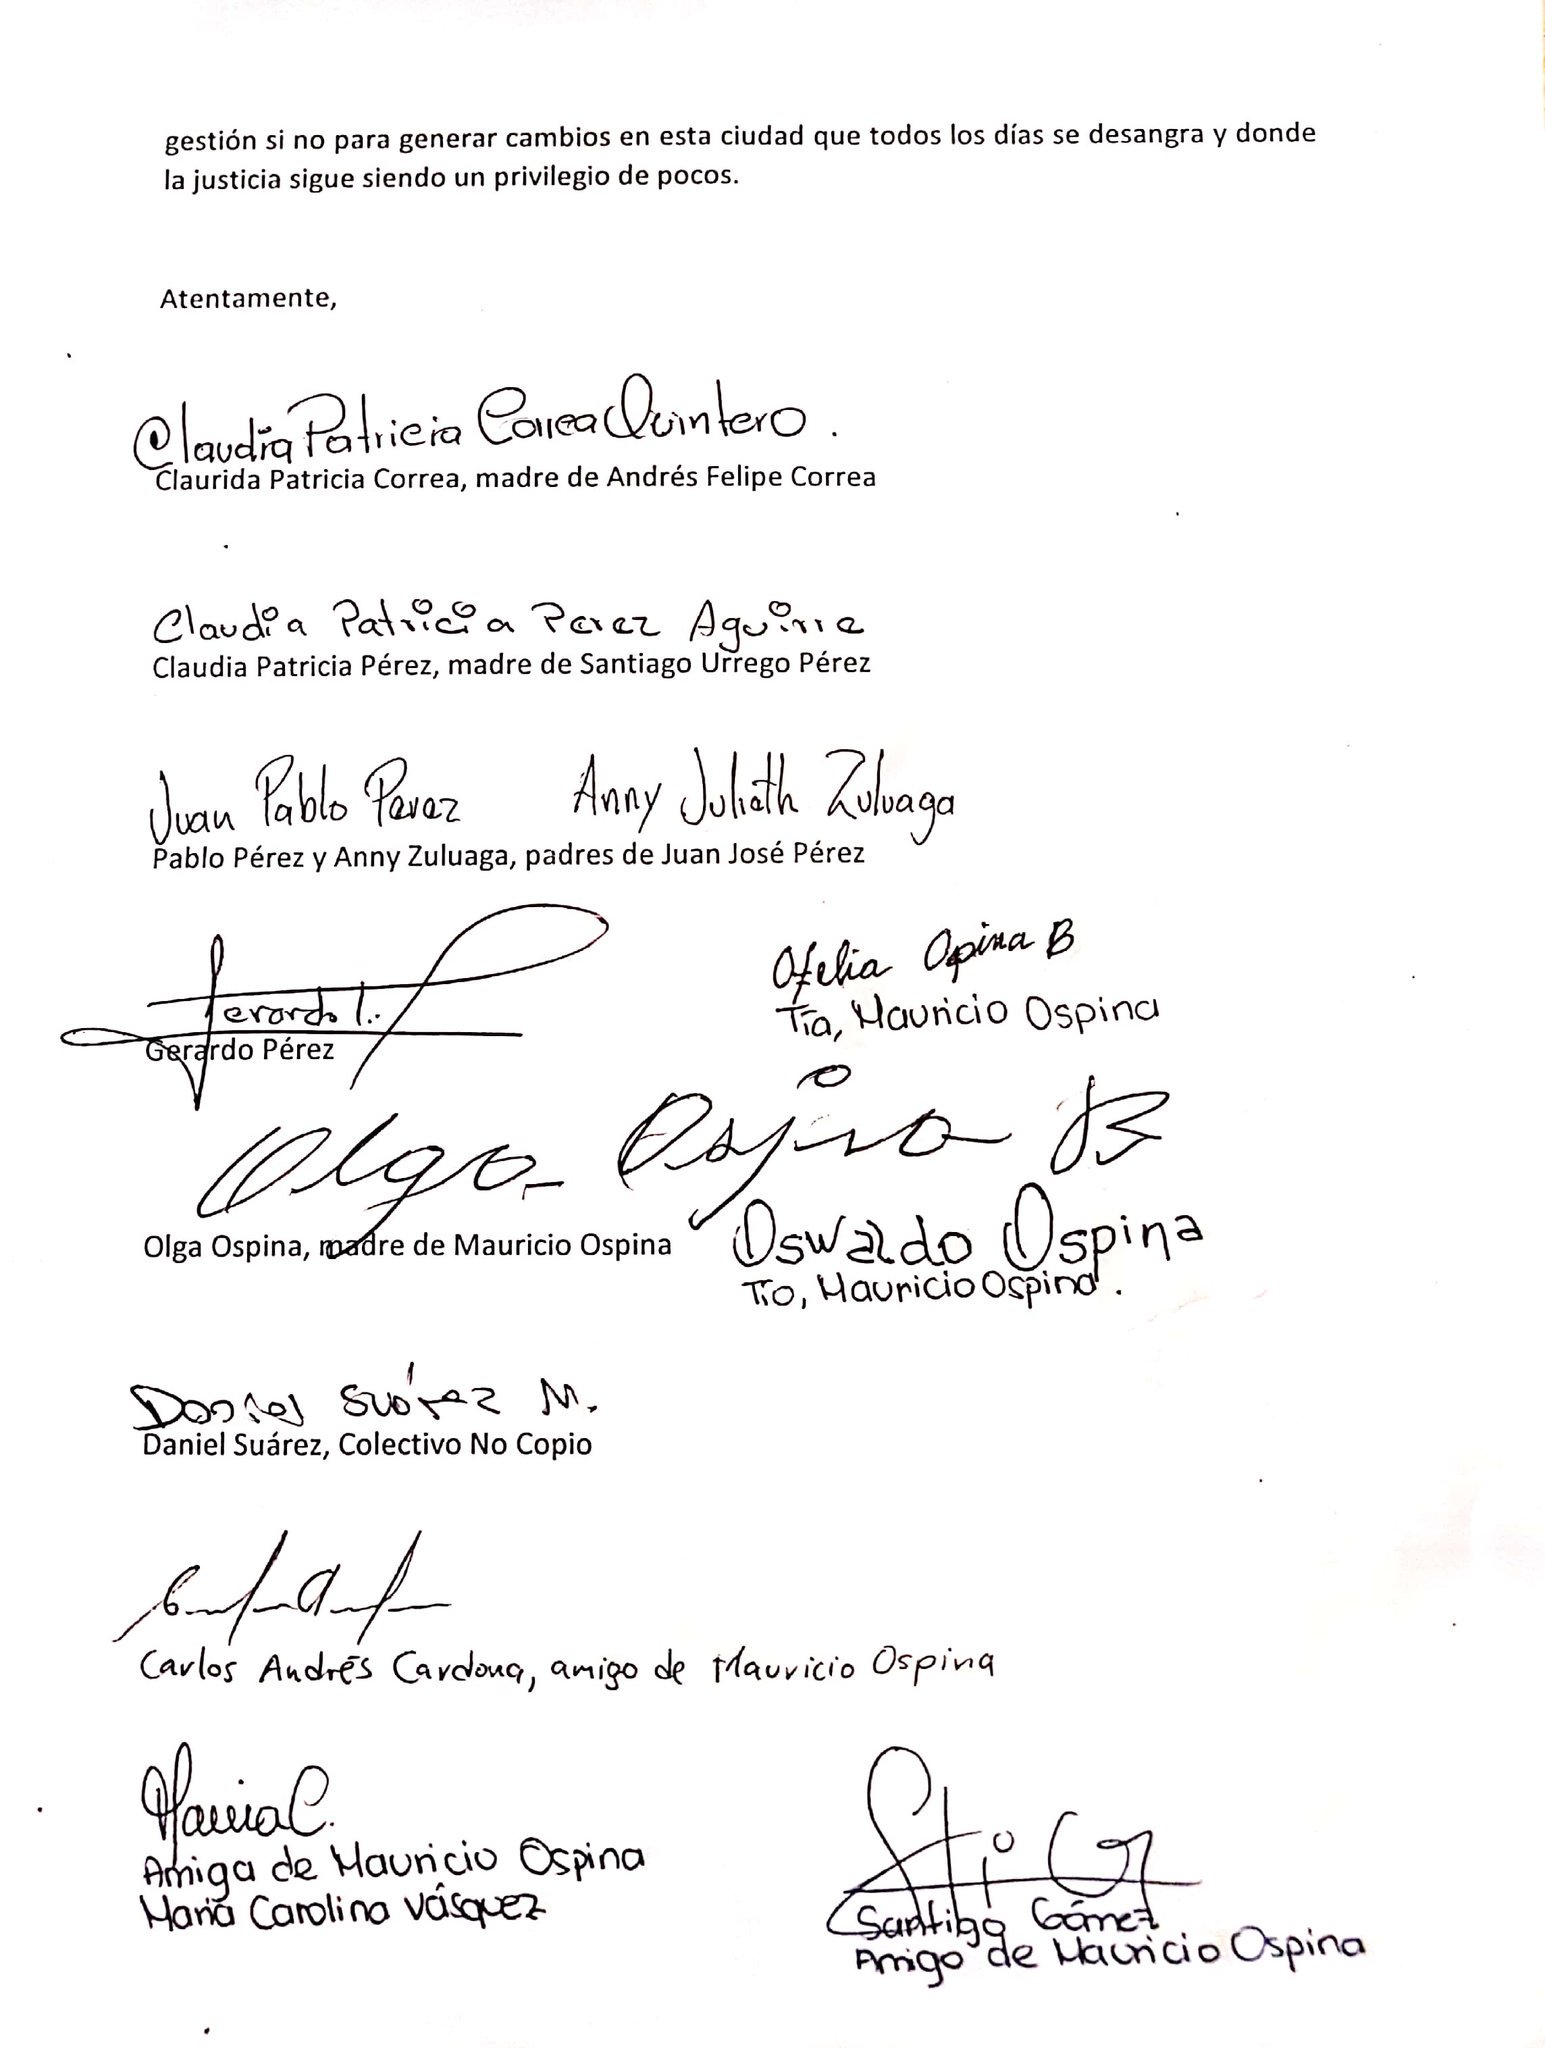 gestión si no para generar cambios en esta ciudad que todos los días se desangra y donde
la justicia sigue siendo un privilegio de pocos.
Atentamente,
Claudia Patricia Correa Quintero.
Claurida Patricia Correa, madre de Andrés Felipe Correa
Claudia Patricia Perez Aguirre
Claudia Patricia Pérez, madre de Santiago Urrego Pérez
Juan Pablo Perez Anny Julieth Zuluaga
Pablo Pérez y Anny Zuluaga, padres de Juan José Pérez
Gerardo
Gerardo Pérez
Ofelia Ospina B
Tía, Mauricio Ospina
Olga Ospina B
Olga Ospina, madre de Mauricio Ospina
Oswaldo Ospina
Tío, Mauricio Ospina.
Daniel Suárez M.
Daniel Suárez, Colectivo No Copio
Carlos Andrés Cardona, amigo de Mauricio Ospina
Maria C.
Amiga de Mauricio Ospina
Maria Carolina Vásquez
Santigo Gómez
Amigo de Mauricio Ospina